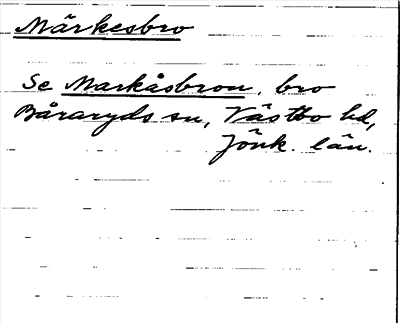 Märkesbro
Se Markåsbron, bro
Båraryds sn, Västbo hd,
Jönk. län.